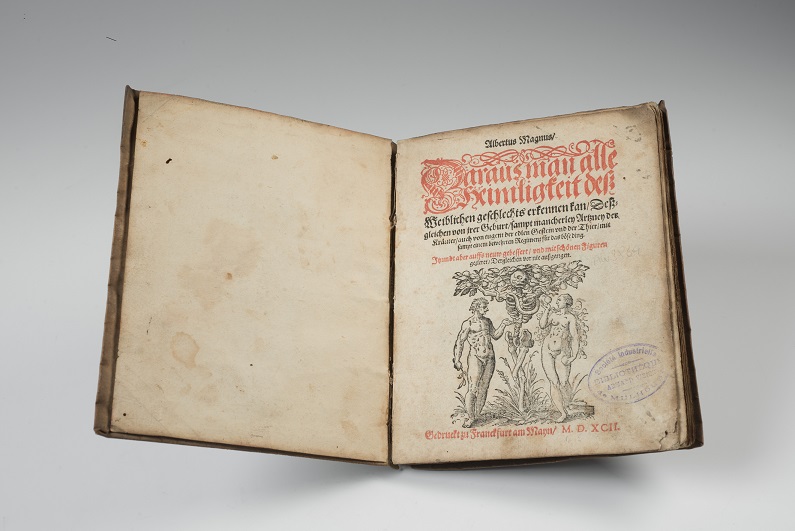 Albertus Magnus/
Daraus man alle
Heimligkeit deß
Weiblichen geschlechts erkennen kan/Deß-
gleichen von irer Geburt/sampt mancherley Artzney der
Kräuter/auch von tugent der edlen Gestein vnd der Thier/mit
sampt einem bewehrten Regiment für das böse ding.
Jtzundt aber auffs neuw gebessert/vnd mit schönen Figuren
gezieret/Dergleichen vor nie außgangen.
Gedruckt zu Franckfurt am Mayn/ M. D. XCII.
industrielle